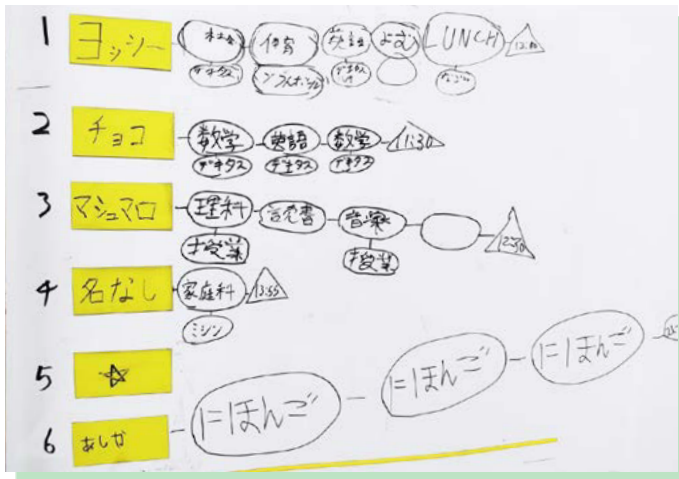 1 ヨッシー 社会 体育 英語 よむ LUNCH
デキタス
2 チョコ 数学 英語 数学 11:30
デキタス デキタス デキタス
3 マシュマロ 理科 読書 音楽 12:30
授業 授業
4 名なし 家庭科 13:55
ミシン
5 ☆
6 あしか にほんご にほんご にほんご